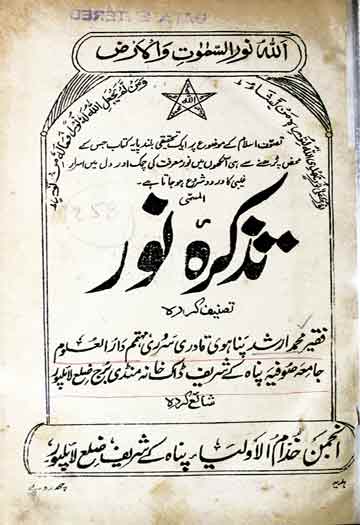 اللہ نور السمٰوٰت والارض
ومن لم یجعل اللہ لہ نورا فمالہ من نور
تصوف اسلام کے موضوع پر ایک تحقیقی بلند پایہ کتاب جس کے
محض پڑھنے سے ہی آنکھوں میں نور معرفت کی چمک اور دل میں اسرار
غیبی کا ورود شروع ہو جاتا ہے۔
المسمّی
تذکرۂ نور
تصنیف کردہ
فقیر محمد ارشد پناہوی قادری سروری مہتمم دار العلوم
جامعہ صوفیہ پناہ کے شریف ڈاک خانہ منڈی برج ضلع لائلپور
شائع کردہ
انجمن خدام الاولیاء پناہ کے شریف ضلع لائلپور